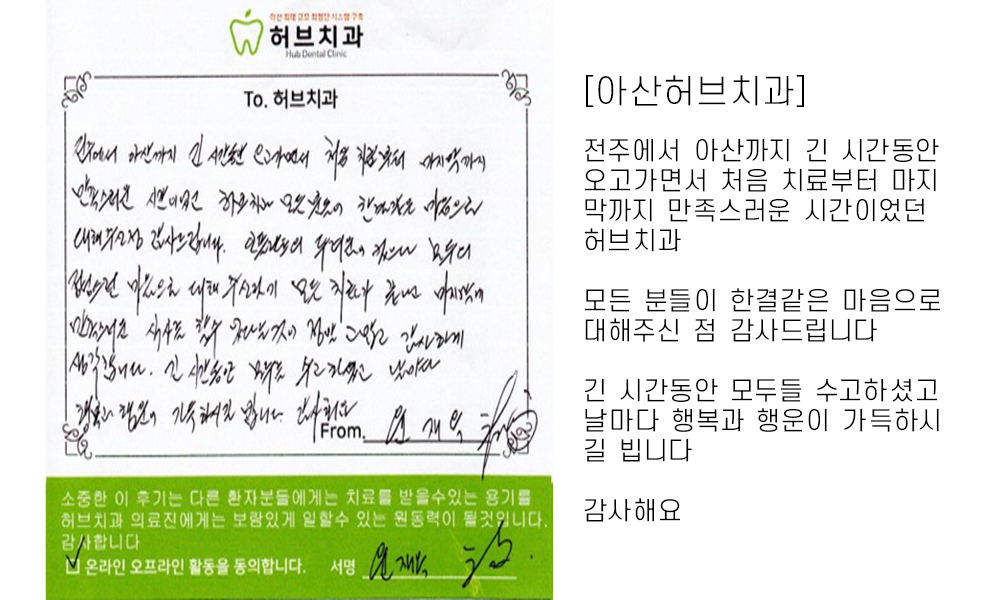 아산 최대 규모 최첨단 시스템 구축
허브치과
Hub Dental Clinic
To. 허브치과
전주에서 아산까지 긴 시간동안 오고가면서 처음 치료부터 마지막까지
만족스러운 시간이었던 허브치과 모든 분들이 한결같은 마음으로
대해주신점 감사드립니다.
마음으로 대해 주신 모든 치료가 끝나고 마지막에
만족스러운 식사를 할수 정말 감사하게
생각합니다. 긴 시간동안 모두들 수고하셨고 날마다
행복과 행운이 가득하시길 빕니다. 감사해요
From. 윤재옥
소중한 이 후기는 다른 환자분들에게는 치료를 받을수있는 용기를
허브치과 의료진에게는 보람있게 일할수 있는 원동력이 될것입니다.
감사합니다
온라인 오프라인 활동을 동의합니다. 서명
[아산허브치과]
전주에서 아산까지 긴 시간동안
오고가면서 처음 치료부터 마지
막까지 만족스러운 시간이었던
허브치과
모든 분들이 한결같은 마음으로
대해주신 점 감사드립니다
긴 시간동안 모두들 수고하셨고
날마다 행복과 행운이 가득하시
길 빕니다
감사해요